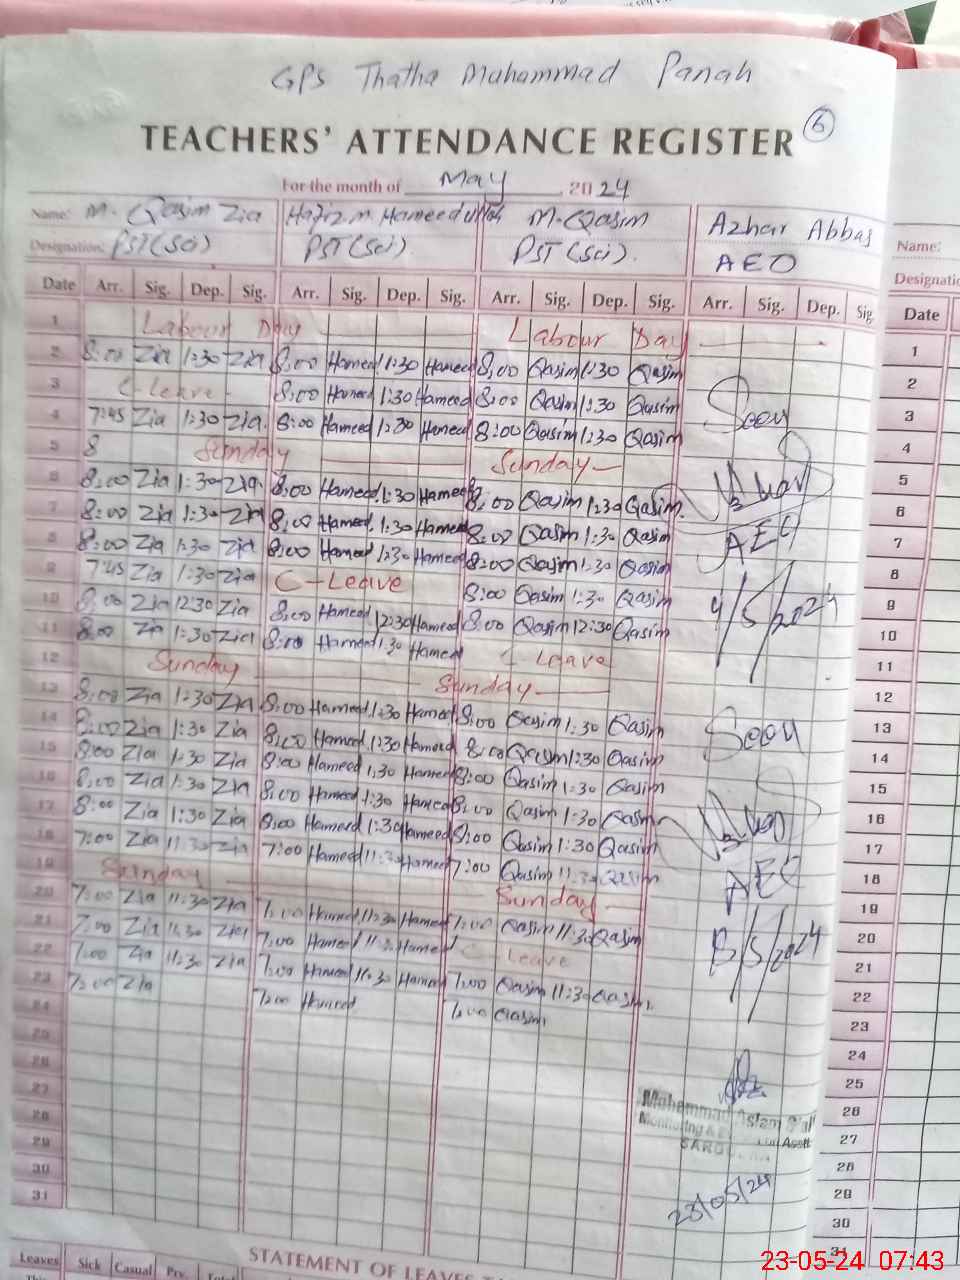 GPS Thatha Muhammad Panah
TEACHERS' ATTENDANCE REGISTER 6
For the month of May 2024
Name: M. Qasim Zia Hafiz. M. Hameedullah M. Qasim Azhar Abbas Name:
Designation: PST (Sci) PST (Sci). PST (Sci). AEO Designatio
Date Arr. Sig. Dep. Sig. Arr. Sig. Dep. Sig. Arr. Sig. Dep. Sig. Arr. Sig. Dep. Sig. Date
1 Labour Day Labour Day 1
2 8:00 Zia 1:30 Zia 8:00 Hameed 1:30 Hameed 8:00 Qasim 1:30 Qasim 2
3 C-Leave 8:00 Hameed 1:30 Hameed 8:00 Qasim 1:30 Qasim Seen 3
4 7:45 Zia 1:30 Zia 8:00 Hameed 1:30 Hameed 8:00 Qasim 1:30 Qasim 4
5 8 Sunday Sunday 5
6 8:00 Zia 1:30 Zia 8:00 Hameed 1:30 Hameed 8:00 Qasim 1:30 Qasim 6
7 8:00 Zia 1:30 Zia 8:00 Hameed 1:30 Hameed 8:00 Qasim 1:30 Qasim AEO 7
8 8:00 Zia 1:30 Zia 8:00 Hameed 1:30 Hameed 8:00 Qasim 1:30 Qasim 8
9 7:45 Zia 1:30 Zia C-Leave 8:00 Qasim 1:30 Qasim 4/5/2024 9
10 8:00 Zia 12:30 Zia 8:00 Hameed 12:30 Hameed 8:00 Qasim 12:30 Qasim 10
11 8:00 Zia 1:30 Zia 8:00 Hameed 1:30 Hameed C-Leave 11
12 Sunday Sunday 12
13 8:00 Zia 1:30 Zia 8:00 Hameed 1:30 Hameed 8:00 Qasim 1:30 Qasim Seen 13
14 8:00 Zia 1:30 Zia 8:00 Hameed 1:30 Hameed 8:00 Qasim 1:30 Qasim 14
15 8:00 Zia 1:30 Zia 8:00 Hameed 1:30 Hameed 8:00 Qasim 1:30 Qasim 15
16 8:00 Zia 1:30 Zia 8:00 Hameed 1:30 Hameed 8:00 Qasim 1:30 Qasim 16
17 8:00 Zia 1:30 Zia 8:00 Hameed 1:30 Hameed 8:00 Qasim 1:30 Qasim 17
18 7:00 Zia 11:30 Zia 7:00 Hameed 11:30 Hameed 7:00 Qasim 11:30 Qasim AEO 18
19 Sunday Sunday 19
20 7:00 Zia 11:30 Zia 7:00 Hameed 11:30 Hameed 7:00 Qasim 11:30 Qasim 13/5/2024 20
21 7:00 Zia 11:30 Zia 7:00 Hameed 11:30 Hameed C-Leave 21
22 7:00 Zia 11:30 Zia 7:00 Hameed 11:30 Hameed 7:00 Qasim 11:30 Qasim 22
23 7:00 Zia 7:00 Hameed 7:00 Qasim 23
24 24
25 25
26 Muhammad Aslam 26
27 Monitoring & 27
28 28
29 29
30 23/05/24 30
31 31
Leaves Sick Casual Prv. Total STATEMENT OF LEAVES
23-05-24 07:43